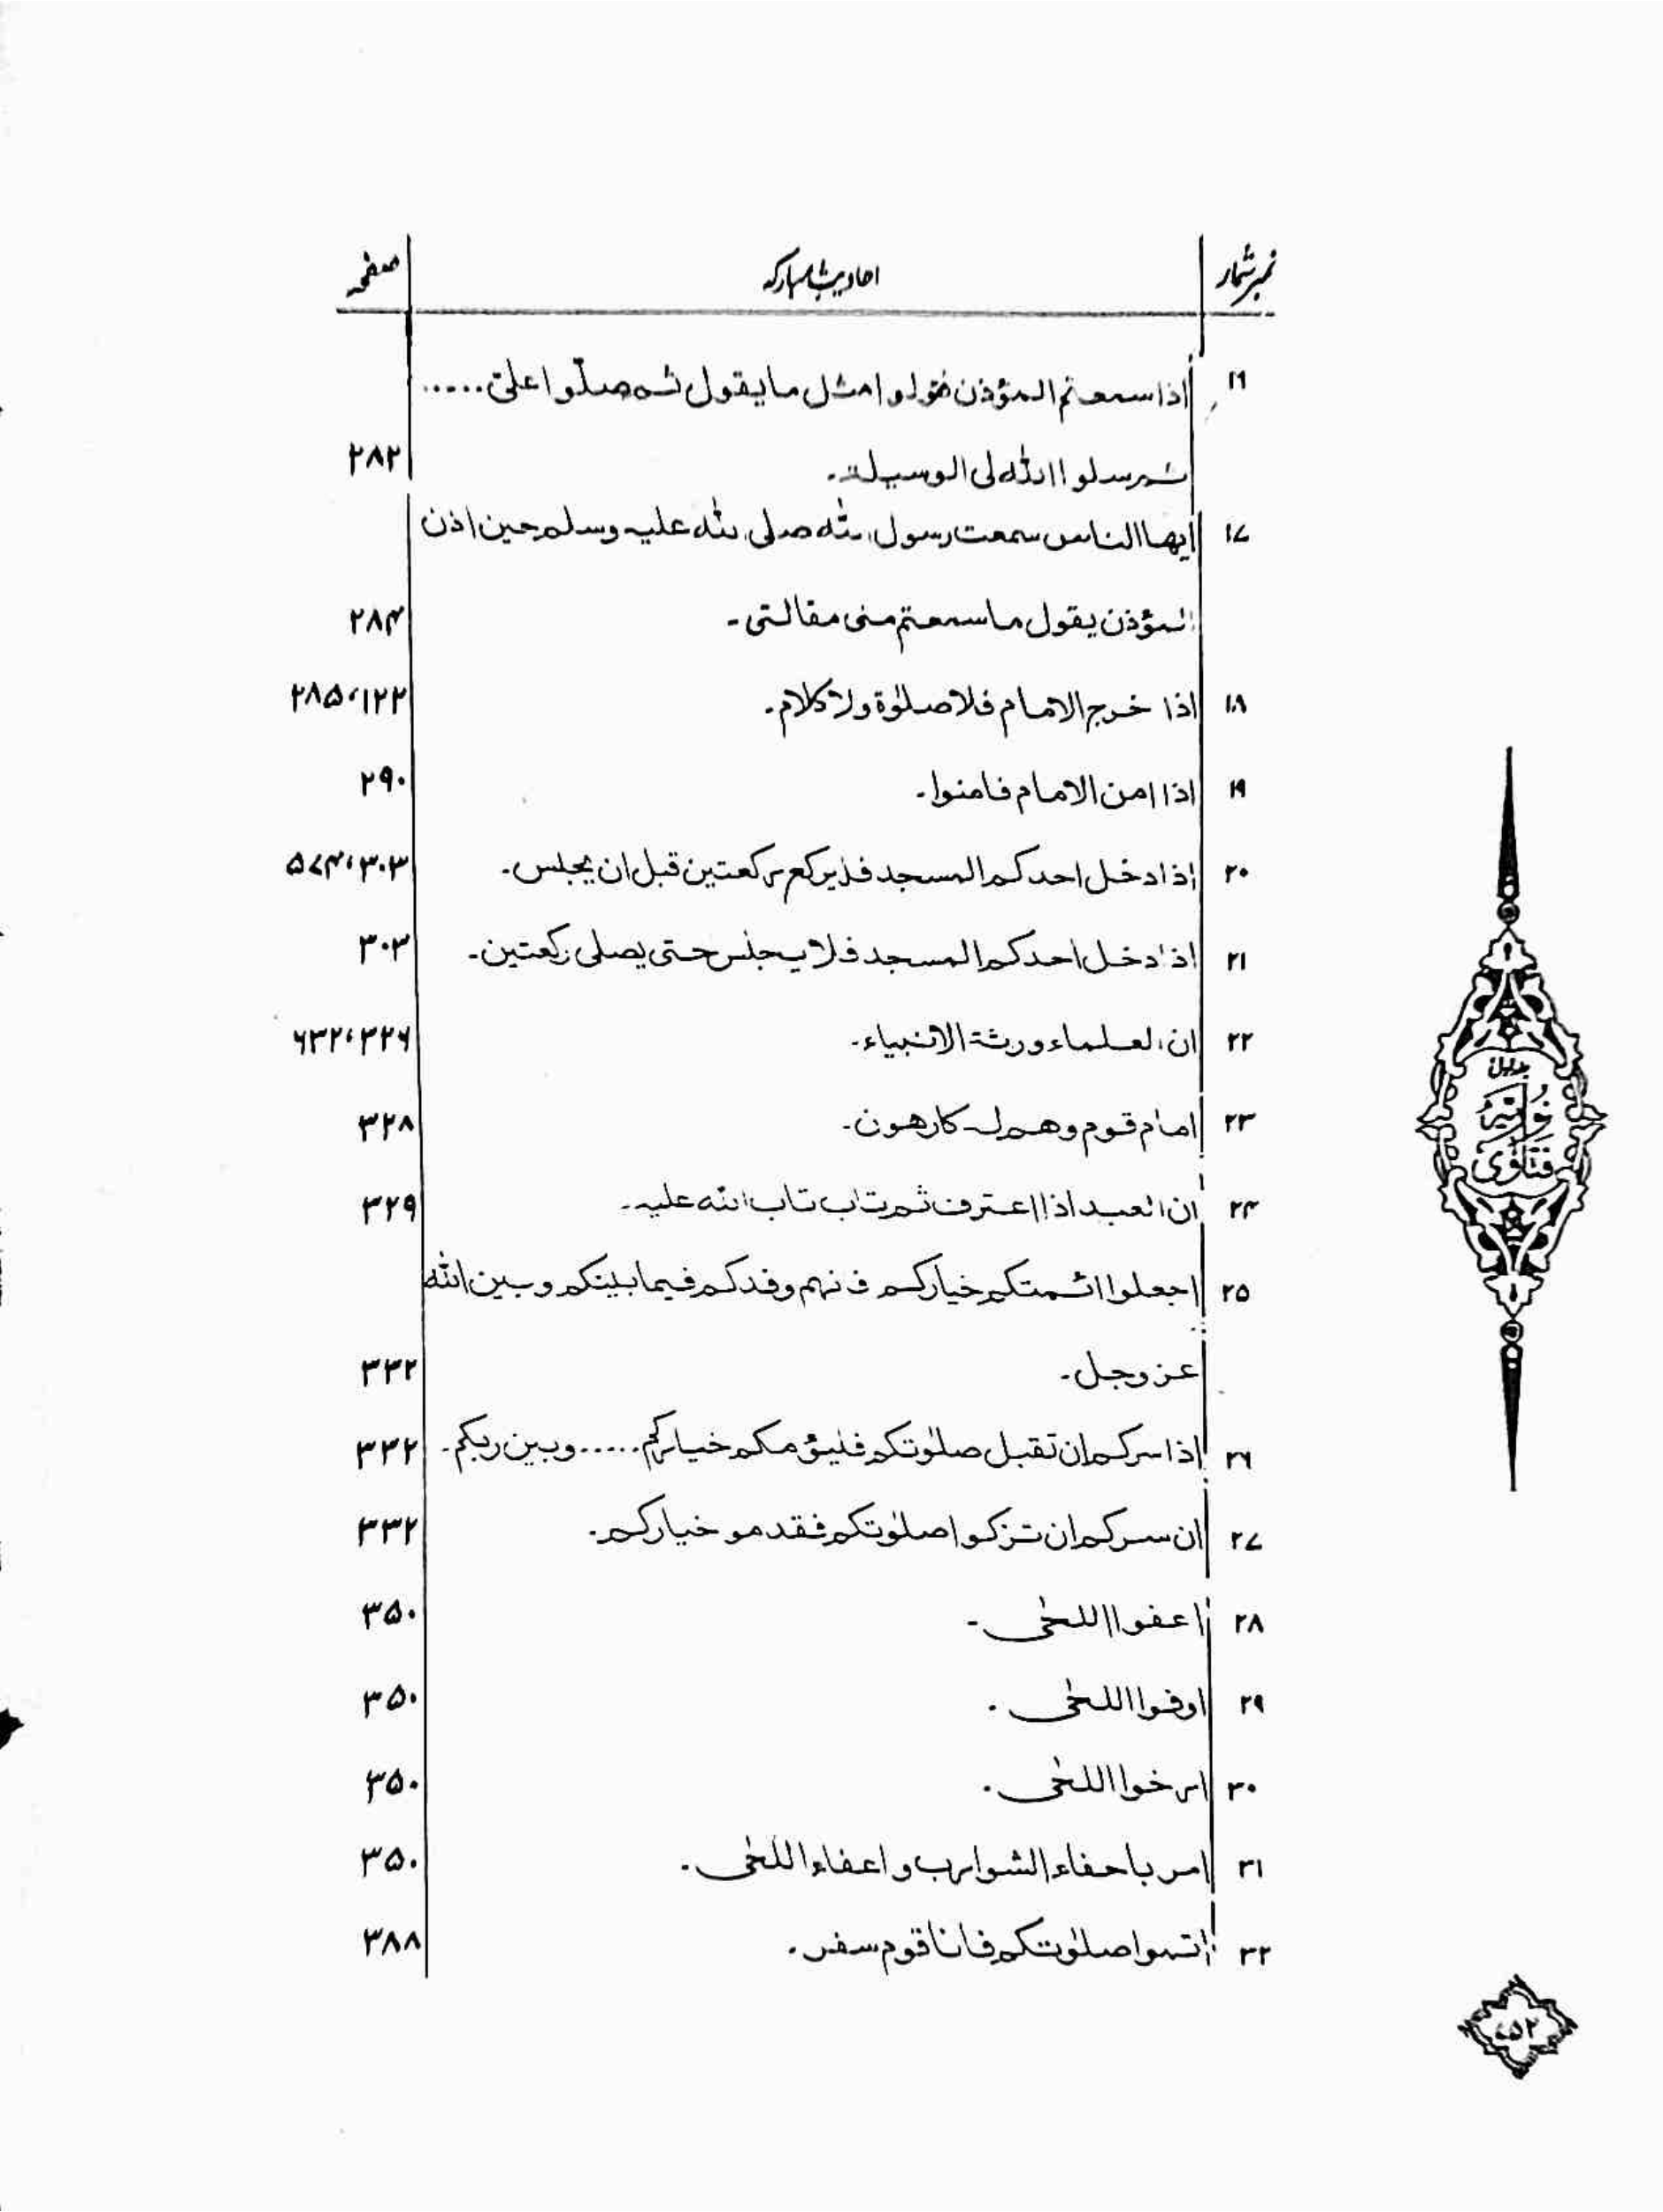 نمبر شمار احادیث مبارکہ صفحہ
۱۶ اذا سمعتم المؤذن فقولوا مثل ما یقول ثم صلّوا علیّ .....
ثم سلوا اللہ لی الوسیلۃ۔ ۲۸۲
۱۷ ایھا الناس سمعت رسول اللہ صلی اللہ علیہ وسلم حین اذن
المؤذن یقول ما سمعتم منی مقالتی۔ ۲۸۴
۱۸ اذا خرج الامام فلا صلٰوۃ ولا کلام۔ ۲۸۵،۱۲۲
۱۹ اذا امن الامام فامنوا۔ ۲۹۰
۲۰ اذا دخل احدکم المسجد فلیرکع رکعتین قبل ان یجلس۔ ۵۷۴،۳۰۳
۲۱ اذا دخل احدکم المسجد فلا یجلس حتی یصلی رکعتین۔ ۳۰۳
۲۲ ان العلماء ورثۃ الانبیاء۔ ۶۳۲،۳۲۶
۲۳ امام قوم وھم لہ کارھون۔ ۳۲۸
۲۴ ان العبد اذا اعترف ثم تاب تاب اللہ علیہ۔ ۳۲۹
۲۵ اجعلوا ائمتکم خیارکم فانھم وفدکم فیما بینکم وبین اللہ
عز وجل۔ ۳۳۲
۲۶ اذا سرکم ان تقبل صلٰوتکم فلیؤمکم خیارکم ..... وبین ربکم۔ ۳۳۲
۲۷ ان سرکم ان تزکوا صلٰوتکم فقدمو خیارکم۔ ۳۳۲
۲۸ اعفوا اللحٰی۔ ۳۵۰
۲۹ اوفوا اللحٰی۔ ۳۵۰
۳۰ ارخوا اللحٰی۔ ۳۵۰
۳۱ امر باحفاء الشوارب واعفاء اللحٰی۔ ۳۵۰
۳۲ اتموا صلٰوتکم فانا قوم سفر۔ ۳۸۸
نُورِیَّہ
فَتَاوٰی
۷۵۲